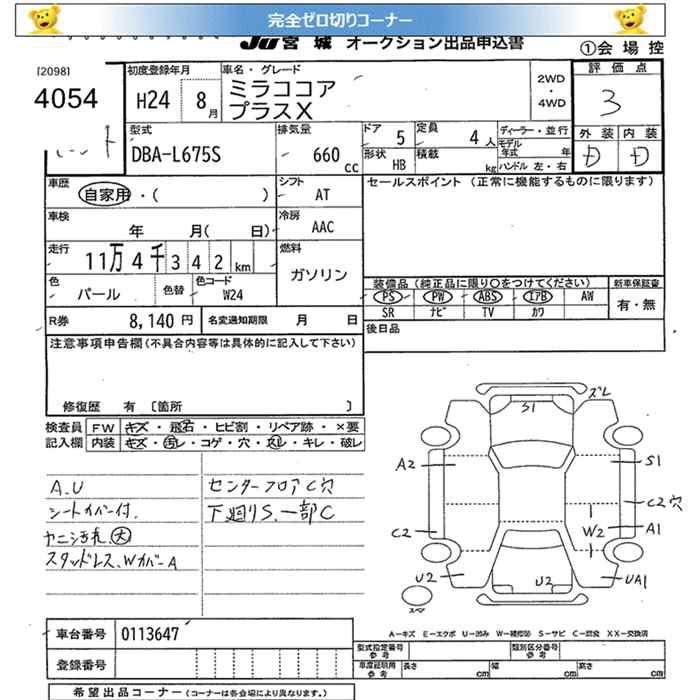 完全ゼロ切りコーナー
JU 宮城 オークション出品申込書
①会場控
[2098]
4054
初度登録年月
H24 8月
車名・グレード
ミラココア
プラスX
2WD
・
4WD
評価点
3
外装 内装
D D
型式
DBA-L675S
排気量
660 cc
ドア 5
定員 4人
形状 HB
積載 kg
ディーラー・並行
モデル年式 年
ハンドル 左・右
車歴
自家用・( )
シフト
AT
セールスポイント (正常に機能するものに限ります)
車検
年 月( 日)
冷房
AAC
走行
11万4千342km
燃料
ガソリン
色
パール
色替
色コード
W24
装備品 (純正品に限り○をつけてください)
新車保証書
PS PW ABS エアB AW
SR ナビ TV カワ
有・無
R券 8,140円
名変通知期限 月 日
後日品
注意事項申告欄 (不具合内容等は具体的に記入して下さい)
修復歴 有 〔箇所 〕
検査員 FW キズ・飛石・ヒビ割・リペア跡・×要
記入欄 内装 キズ・汚レ・コゲ・穴・スレ・キレ・破レ
A.U
シートカバー付.
ヤニ汚れ 大
スタッドレス、Wカバ-A
センターフロアC穴
下廻りS.一部C
ズレ
S1
A2
S1
C2穴
A1
W2
C2
U2
U2
UA1
スペ
A-キズ E-エクボ U-凹み W-補修跡 S-サビ C-腐食 XX-交換済
車台番号 0113647
登録番号
型式指定番号 参考
類別区分番号 参考
車庫証明用 参考
長さ cm
幅 cm
高さ cm
希望出品コーナー (コーナーは各会場により異なります。)